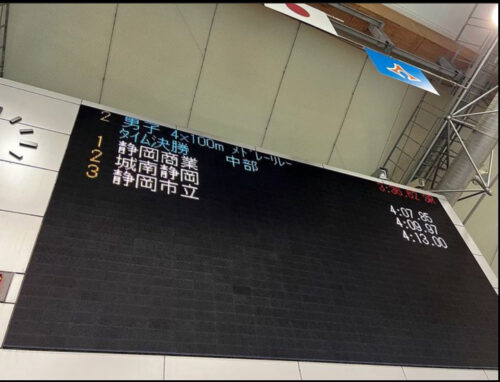 2 男子 4×100m メドレーリレー
タイム決勝 中部
1 静岡商業 4:07.85
2 城南静岡 4:09.97
3 静岡市立 4:13.00